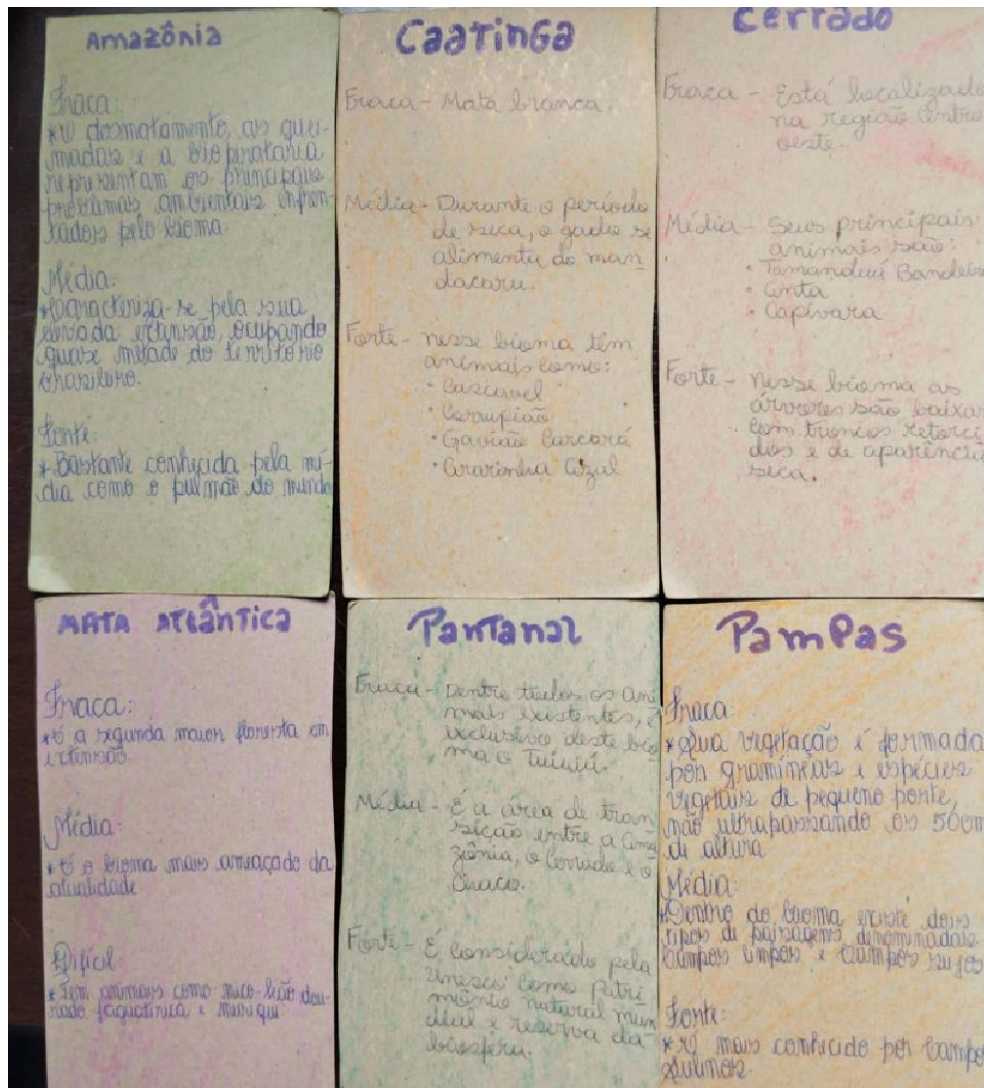 Amazônia
Fraca:
* O desmatamento, as quei-
madas e a biopirataria
representam os principais
problemas ambientais enfren
tados pelo bioma.
Média:
* Caracteriza-se pela sua
elevada extensão, ocupando
quase metade do território
brasileiro.
Forte:
* Bastante conhecida pela mí-
dia como o pulmão do mundo
Caatinga
Fraca - Mata branca.
Média - Durante o período
de seca, o gado se
alimenta do man
dacaru.
Forte - nesse bioma têm
animais como:
• Cascavel
• Corrupião
• Gavião Carcará
• Ararinha Azul
Cerrado
Fraca - Está localizado
na região Centro
oeste.
Média - Seus principais
animais são:
• Tamanduá Bandeir
• Anta
• Capivara
Forte - Nesse bioma as
árvores são baixas
com troncos retorci
dos e de aparência
seca.
MATA ATLÂNTICA
Fraca:
* é a segunda maior floresta em
extensão
Média:
* é o bioma mais ameaçado da
atualidade
Difícil:
* Tem animais como mico-leão dou-
rado jaguatirica e muriqui
Pantanal
Fraca - Dentre todos os ani
mais existentes, é
exclusivo deste bio
ma o Tuiuiú.
Média - É a área de tran
sição entre a Ama
zônia, o Cerrado e o
Chaco.
Forte - É considerado pela
Unesco como patri
mônio natural mun
dial e reserva da
biosfera.
Pampas
Fraca:
* Sua vegetação é formada
por gramíneas e espécies
vegetais de pequeno porte,
não ultrapassando os 50cm
de altura
Média:
* Dentro do bioma existe dois
tipos de paisagens denominadas
campos limpos e campos sujos
Forte:
* é mais conhecido por campo
sulinos.